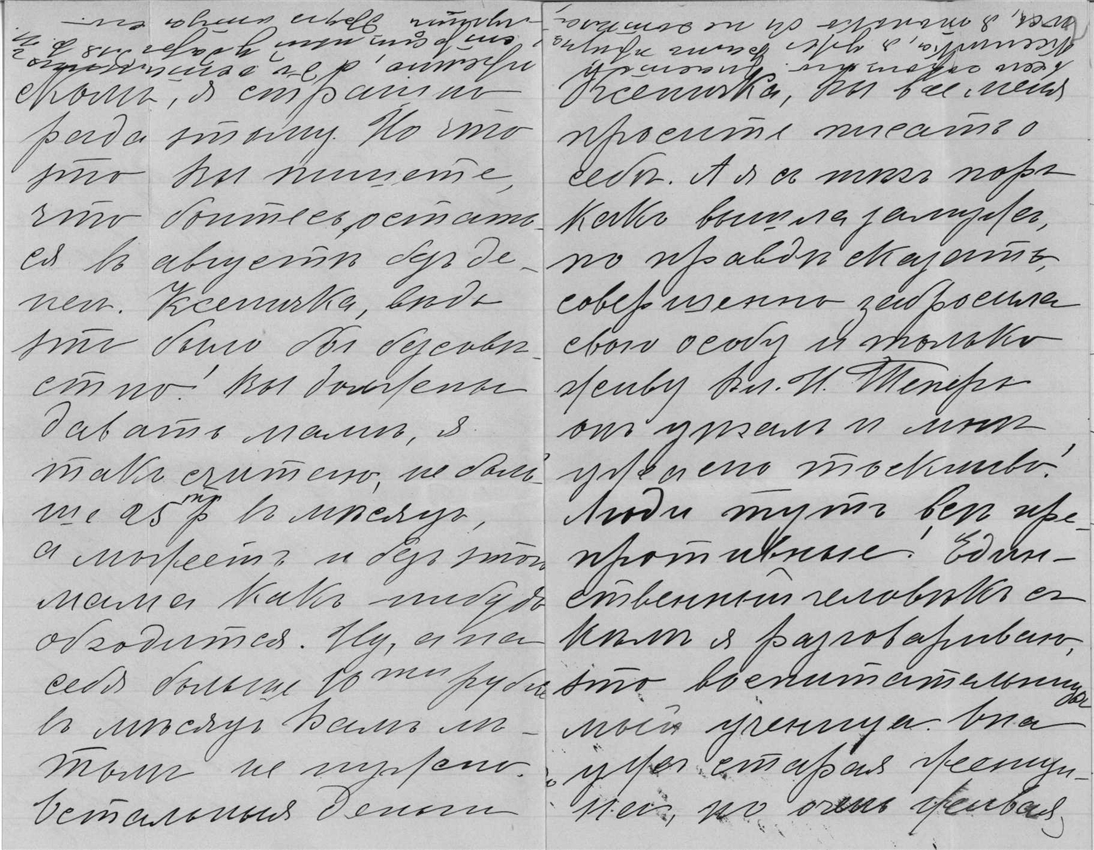 скомъ, я страшно
рада этому. Но что
это Вы пишете,
что боитесь остать-
ся въ августѣ безъ де-
негъ. Ксеничка, вѣдь
это было бы безсовѣ-
стно! Вы должны
давать мамѣ, я
такъ считаю, не боль-
ше 25 р въ мѣсяцъ,
а можетъ и безъ этого
мама какъ нибудь
обходится. Ну, а на
себя больше 10ти рублей
въ мѣсяцъ Вамъ лѣ-
томъ не нужно.
Остальныя деньги
Ксеничка, Вы все меня
просите писать о
себѣ. А я съ тѣхъ поръ
какъ вышла замужъ,
по правдѣ сказать,
совершенно забросила
свою особу и только
живу Вл. И. Теперь
онъ уѣхалъ и мнѣ
ужасно тоскливо!
Люди тутъ всѣ пре-
противные! Един-
ственный человѣкъ съ
кѣмъ я разговариваю,
это воспитательница
моей ученицы. Она
уже старая женщи-
на, но очень живая,